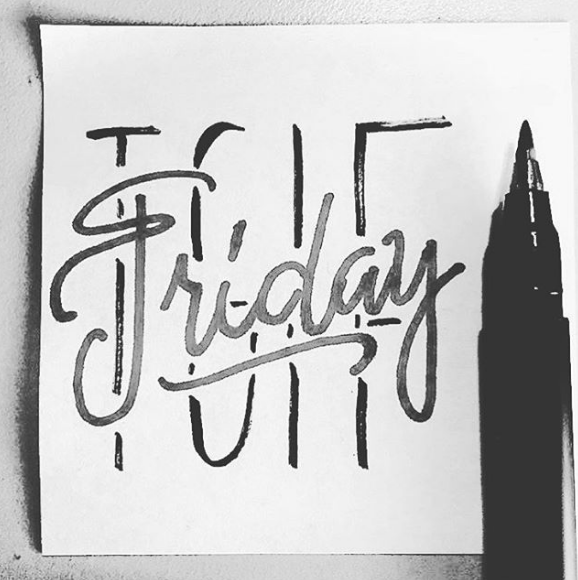 TGIF
Friday